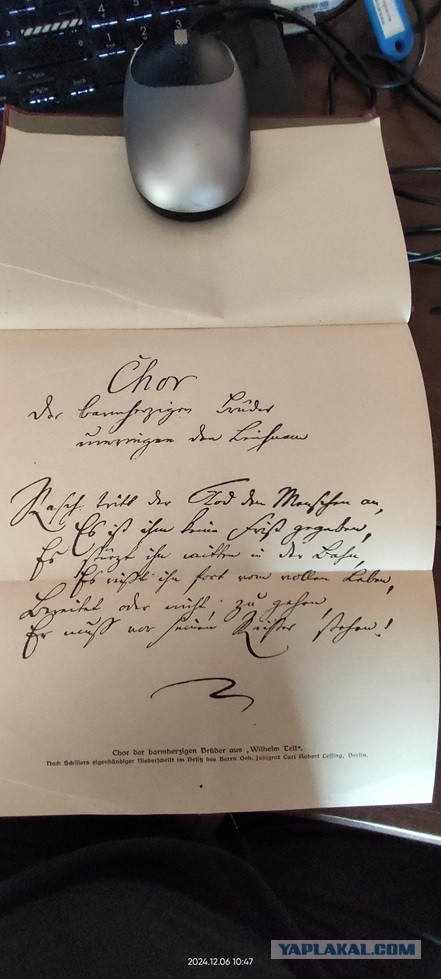 4
3
2
Chor
der barmherzigen Brüder
umringen den Leichnam
Rasch tritt der Tod den Menschen an,
Es ist ihm keine Frist gegeben,
Es stürzt ihn mitten in der Bahn,
Es reißt ihn fort vom vollen Leben,
Bereitet oder nicht, zu gehen,
Er muß vor seinen Richter stehen!
Chor der barmherzigen Brüder aus „Wilhelm Tell“.
Nach Schillers eigenhändiger Niederschrift im Besitz des Herrn Geh. Justizrat Carl Robert Lessing, Berlin.
2024.12.06 10:47
YAPLAKAL.COM